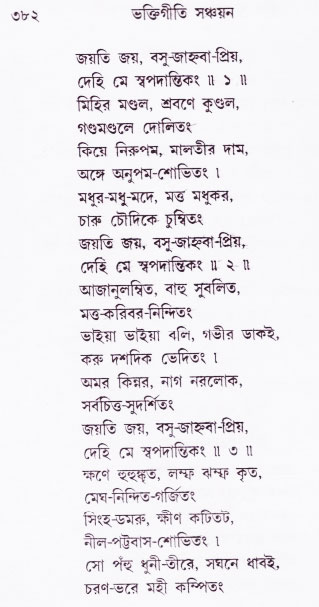 ৩৮২ ভক্তিগীতি সঞ্চয়ন
জয়তি জয়, বসু-জাহ্নবা-প্রিয়,
দেহি মে স্বপদান্তিকং ॥ ১ ॥
মিহির মণ্ডল, শ্রবণে কুণ্ডল,
গণ্ডমণ্ডলে দোলিতং
কিয়ে নিরুপম, মালতীর দাম,
অঙ্গে অনুপম-শোভিতং ৷
মধুর-মধু-মদে, মত্ত মধুকর,
চারু চৌদিকে চুম্বিতং
জয়তি জয়, বসু-জাহ্নবা-প্রিয়,
দেহি মে স্বপদান্তিকং ॥ ২ ॥
আজানুলম্বিত, বাহু সুবলিত,
মত্ত-করিবর-নিন্দিতং
ভাইয়া ভাইয়া বলি, গভীর ডাকই,
করু দশদিক ভেদিতং ৷
অমর কিন্নর, নাগ নরলোক,
সর্বচিত্ত-সুদর্শিতং
জয়তি জয়, বসু-জাহ্নবা-প্রিয়,
দেহি মে স্বপদান্তিকং ॥ ৩ ॥
ক্ষণে হুহুঙ্কৃত, লম্ফ ঝম্ফ কৃত,
মেঘ-নিন্দিত-গর্জিতং
সিংহ-ডমরু, ক্ষীণ কটিতট,
নীল-পট্টবাস-শোভিতং ৷
সো পঁহু ধুনী-তীরে, সঘনে ধাবই,
চরণ-ভরে মহী কম্পিতং